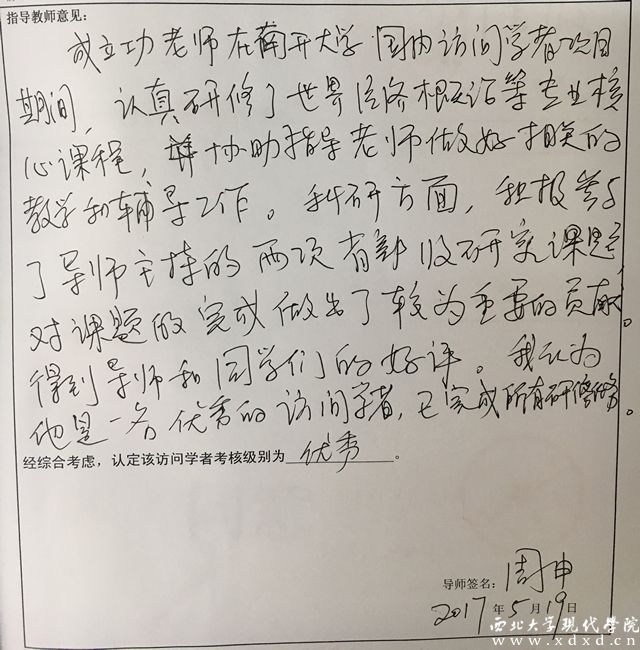 指导教师意见：
成立功老师在南开大学国内访问学者项目
期间，认真研修了世界经济概论等专业核
心课程，并协助指导老师做好相关的
教学和辅导工作。科研方面，积极参与
了导师主持的两项省部级研究课题，
对课题的完成做出了较为重要的贡献。
得到导师和同学们的好评。我认为
他是一名优秀的访问学者，已完成所有研修任务。
经综合考虑，认定该访问学者考核级别为 优秀 。
导师签名：周申
2017年5月19日
西北大学现代学院
www.xdxd.cn